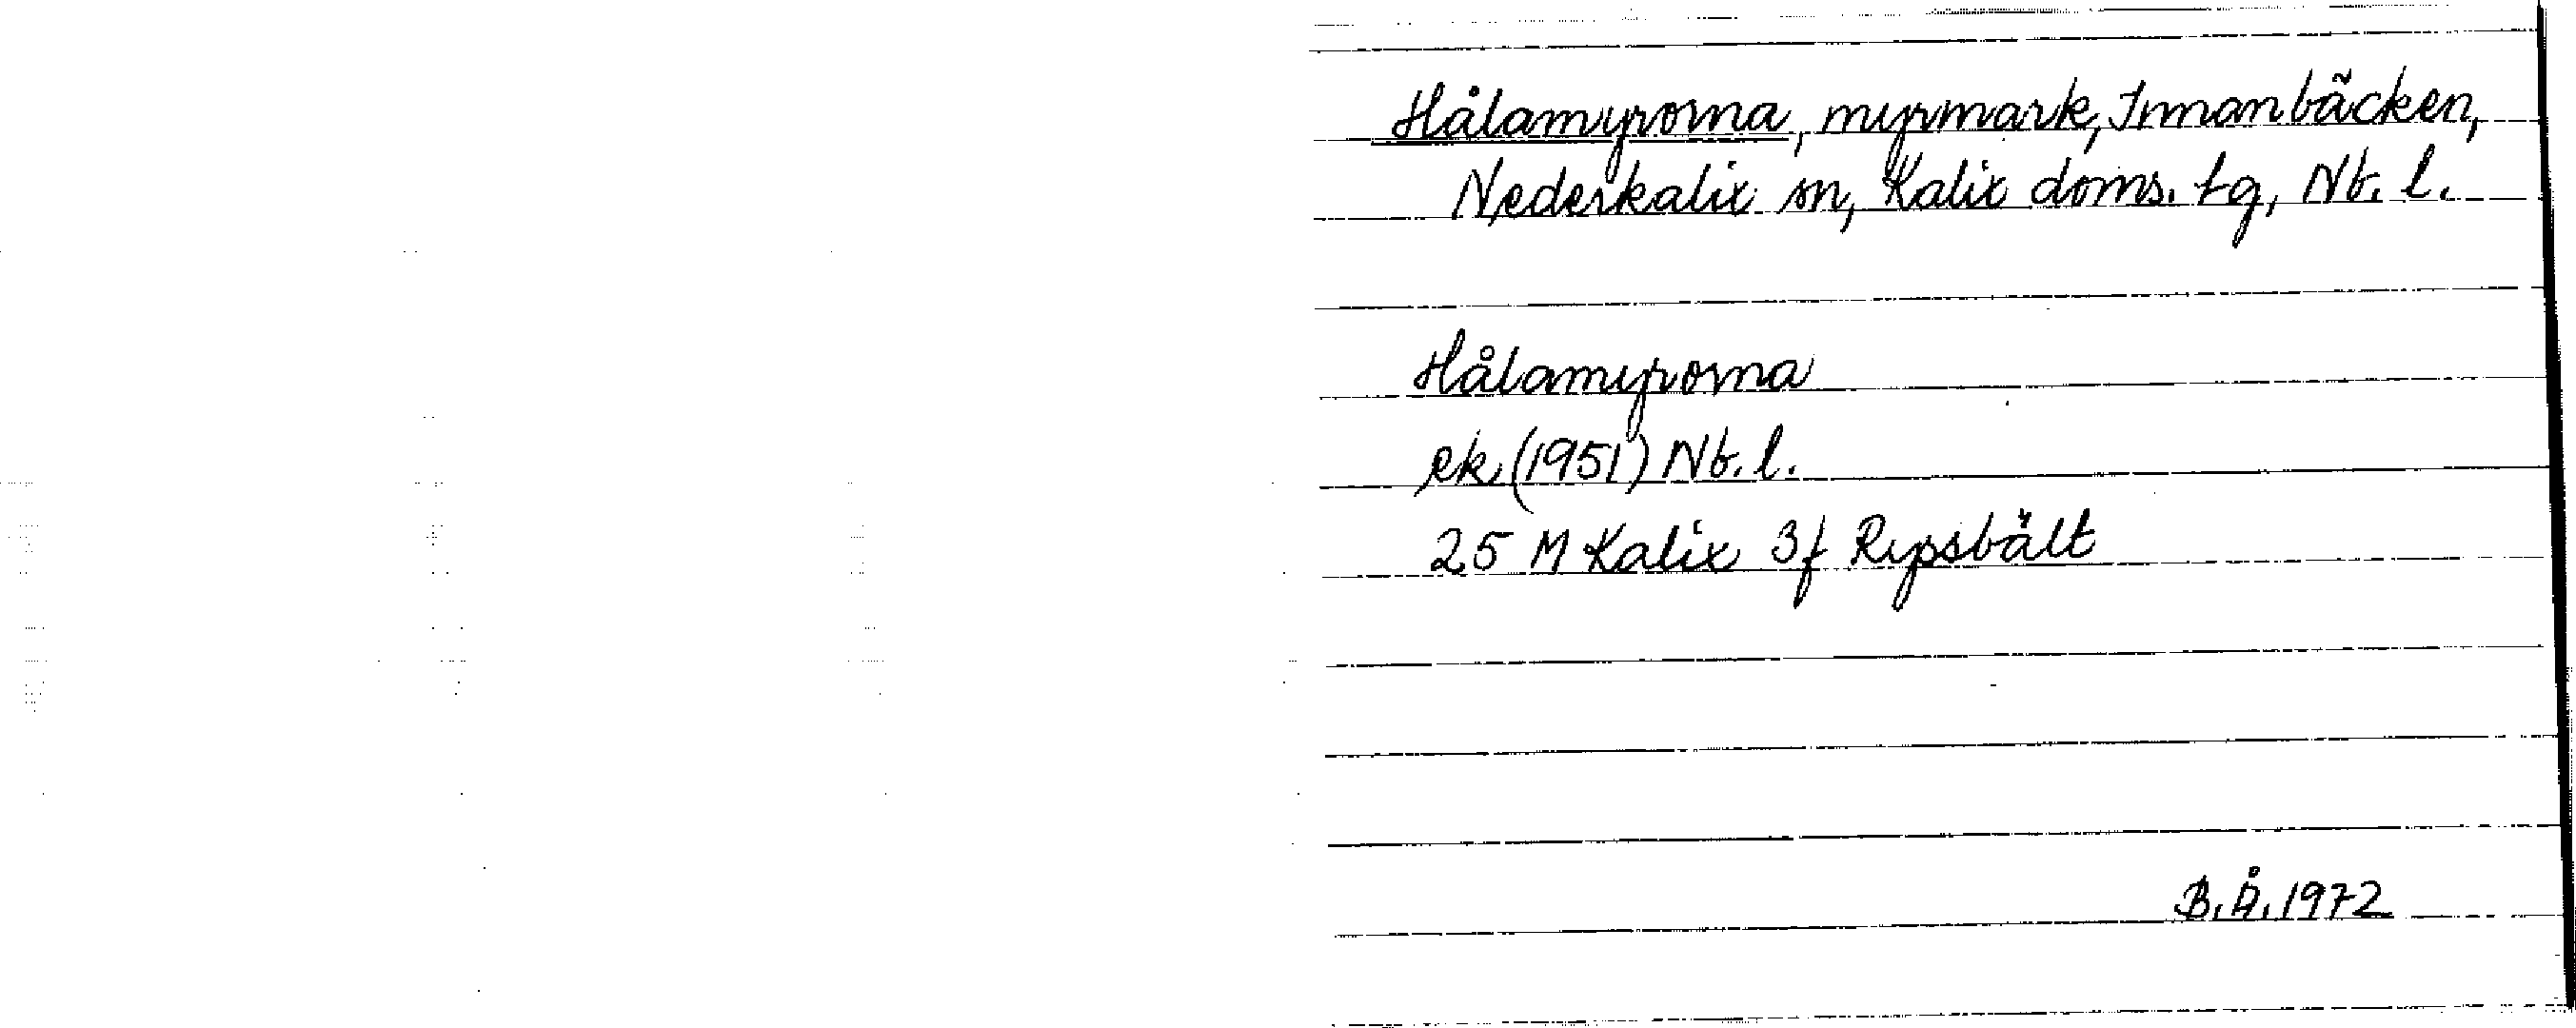 Hålamyrorna, myrmark, Innanbäcken,
Nederkalix sn, Kalix doms. tg, Nb. l.
Hålamyrorna
ek (1951) Nb. l.
25 M Kalix 3f Rypsbält
B. Å. 1972